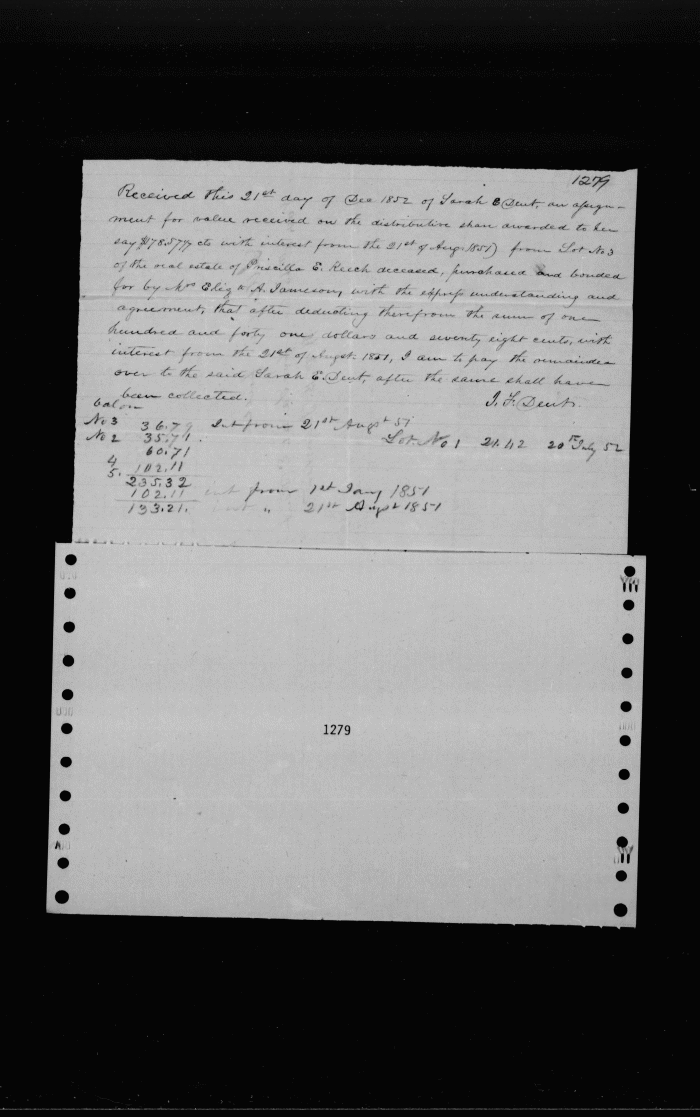 1279
Received this 21st day of Dec 1852 of Sarah E Dent, an assign-
ment for value received on the distributive share awarded to her
say $178.57 cts with interest from the 21st of Aug. 1851) from Lot No 3
of the real estate of Priscilla E. Keech deceased, purchased and bonded
for by Mrs Eliza A. Jameson, with the express understanding and
agreement, that after deducting therefrom the sum of one
hundred and forty one dollars and seventy eight cents, with
interest from the 21st of Augst. 1851, I am to pay the remainder
over to the said Sarah E. Dent, after the same shall have
been collected.
J. F. Dent.
No 3 36.79 Int from 21st Augst 51
No 2 35.71. Lot No 1 21.42 20th July 52
60.71
4
5. 102.11
235.32
102.11 int from 1st Jany 1851
133.21. " 21st Augst 1851
1279